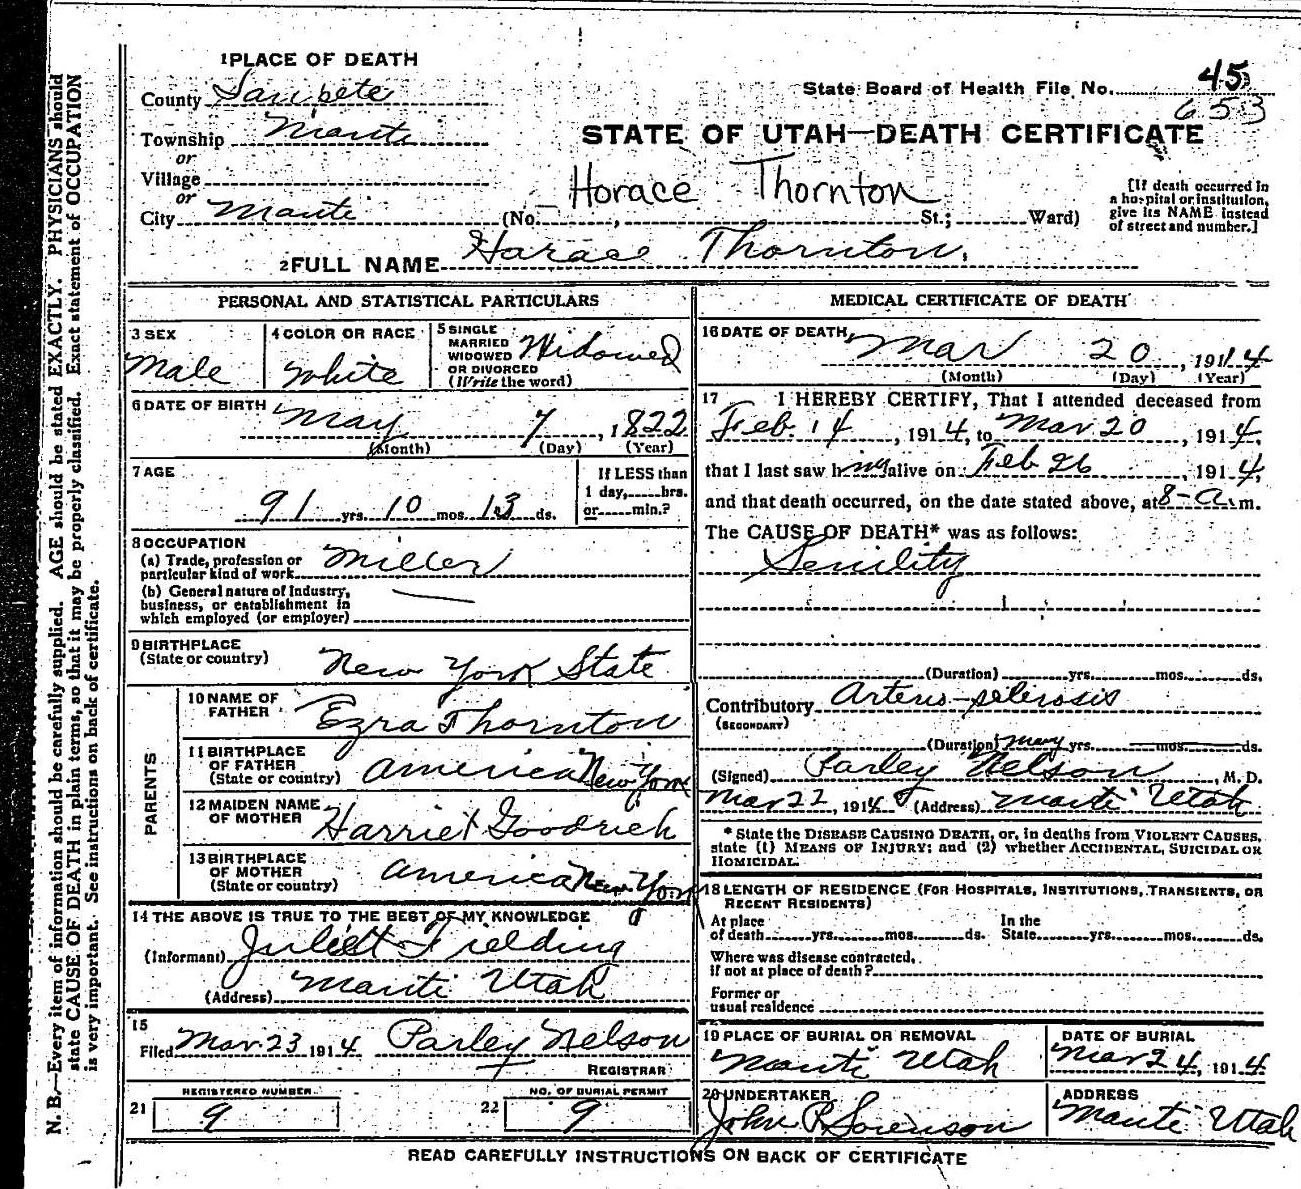 1 PLACE OF DEATH
County Sanpete
Township Manti
or
Village
or
City Manti (No. , St.; Ward)
State Board of Health File No. 45
653
STATE OF UTAH—DEATH CERTIFICATE
Horace Thornton
[If death occurred in
a hospital or institution,
give its NAME instead
of street and number.]
2 FULL NAME Horace Thornton.
PERSONAL AND STATISTICAL PARTICULARS
3 SEX
Male
4 COLOR OR RACE
White
5 SINGLE
MARRIED
WIDOWED
OR DIVORCED
(Write the word)
Widowed
6 DATE OF BIRTH
May 7, 1822
(Month) (Day) (Year)
7 AGE
91 yrs. 10 mos. 13 ds.
If LESS than
1 day, hrs.
or min.?
8 OCCUPATION
(a) Trade, profession or
particular kind of work Miller
(b) General nature of Industry,
business, or establishment in
which employed (or employer) —
9 BIRTHPLACE
(State or country) New York State
PARENTS
10 NAME OF
FATHER Ezra Thornton
11 BIRTHPLACE
OF FATHER
(State or country) America New York
12 MAIDEN NAME
OF MOTHER Harriet Goodrich
13 BIRTHPLACE
OF MOTHER
(State or country) America New York
14 THE ABOVE IS TRUE TO THE BEST OF MY KNOWLEDGE
(Informant) Juliett Fielding
(Address) Manti Utah
15
Filed Mar. 23 1914 Parley Nelson
REGISTRAR
REGISTERED NUMBER
21 9
NO. OF BURIAL PERMIT
22 9
MEDICAL CERTIFICATE OF DEATH
16 DATE OF DEATH
Mar 20, 1914
(Month) (Day) (Year)
17 I HEREBY CERTIFY, That I attended deceased from
Feb. 14, 1914, to Mar 20, 1914,
that I last saw him alive on Feb 26, 1914,
and that death occurred, on the date stated above, at 8-A. m.
The CAUSE OF DEATH* was as follows:
Senility
(Duration) yrs. mos. ds.
Contributory Arterio-sclerosis
(SECONDARY)
(Duration) many yrs. mos. ds.
(Signed) Parley Nelson, M. D.
Mar 22, 1914 (Address) Manti Utah
* State the DISEASE CAUSING DEATH, or, in deaths from VIOLENT CAUSES,
state (1) MEANS OF INJURY; and (2) whether ACCIDENTAL, SUICIDAL OR
HOMICIDAL.
18 LENGTH OF RESIDENCE (FOR HOSPITALS, INSTITUTIONS, TRANSIENTS, OR
RECENT RESIDENTS)
At place
of death yrs. mos. ds.
In the
State yrs. mos. ds.
Where was disease contracted,
if not at place of death?
Former or
usual residence
19 PLACE OF BURIAL OR REMOVAL
Manti Utah
DATE OF BURIAL
Mar 24, 1914
20 UNDERTAKER
John P. Sorenson
ADDRESS
Manti Utah
READ CAREFULLY INSTRUCTIONS ON BACK OF CERTIFICATE
N. B.—Every item of information should be carefully supplied. AGE should be stated EXACTLY. PHYSICIANS should
state CAUSE OF DEATH in plain terms, so that it may be properly classified. Exact statement of OCCUPATION
is very important. See instructions on back of certificate.